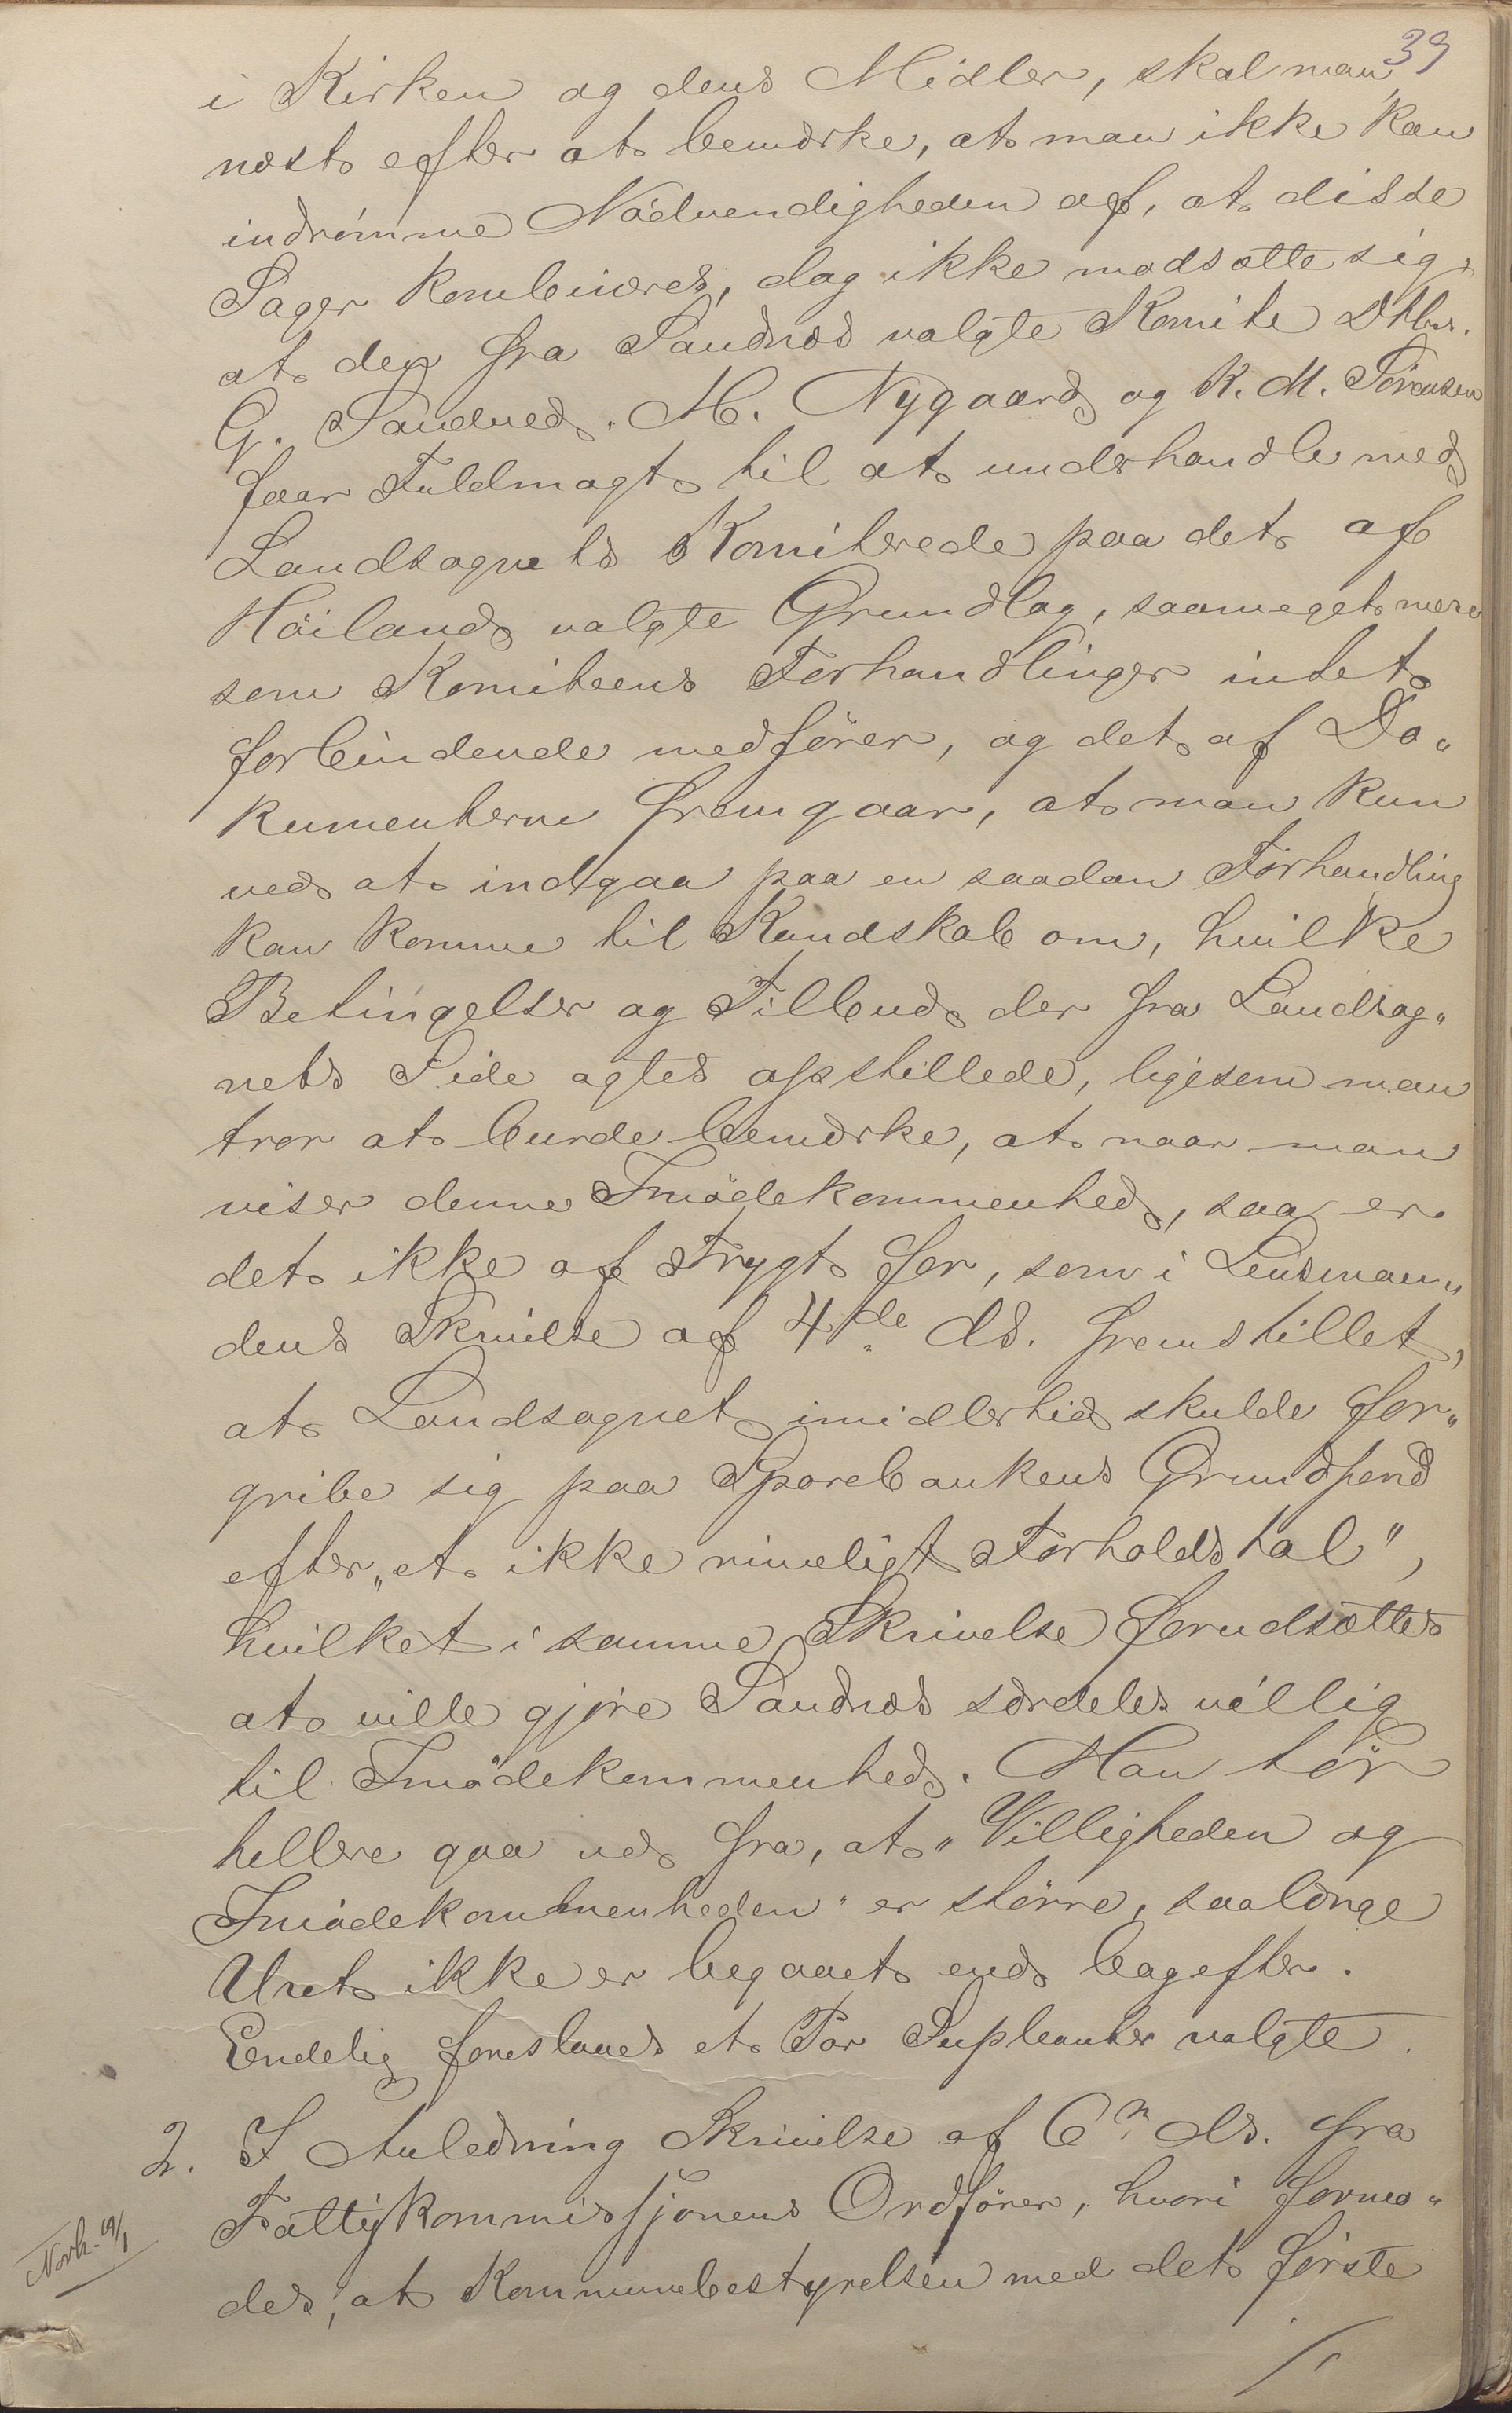 39
i Kirken og dens Midler, skal man
næst efter at bemærke, at man ikke kan
indrømme Nödvendigheden af, at disse
Sager kombineres, dog ikke modsætte sig,
at den fra Sandnæs valgte Komite DHbr.
G. Sandved, M. Nygaard og K. M. Sörensen
faar Fuldmagt til at underhandle med
Landsognets Komiterede paa det af
Höiland valgte Grundlag, saameget mere
som Komiteens Forhandlinger intet
forbindende medförer, og det af Do„
kumenterne fremgaar, at man kun
ved at indgaa paa en saadan Forhandling
kan komme til Kundskab om, hvilke
Betingelser og Tilbud der fra Landsog„
nets Side agtes opstillede, ligesom man
tror at burde bemærke, at naar man
viser denne Imödekommenhed, saa er
det ikke af Frygt for, som i Lensman„
dens Skrivelse af 4de ds. fremstillet,
at Landsognet imidlertid skulde for„
gribe sig paa Sparebankens Grundfond
efter „et ikke rimeligt Forholdstal”,
hvilket i samme Skrivelse forudsættes
at ville gjöre Sandnæs særdeles villig
til Imödekommenhed. Man tör
hellere gaa ud fra, at „Villigheden og
Imödekommenheden” er större, saalænge
Uret ikke er begaaet end bagefter.
Endelig foreslaaes et Par Supleanter valgte.
2. I Anledning Skrivelse af 6n ds. fra
Fattigkommissjonens Ordförer, hvori formo„
des, at Kommunebestyrelsen med det förste
Novb. 19/1